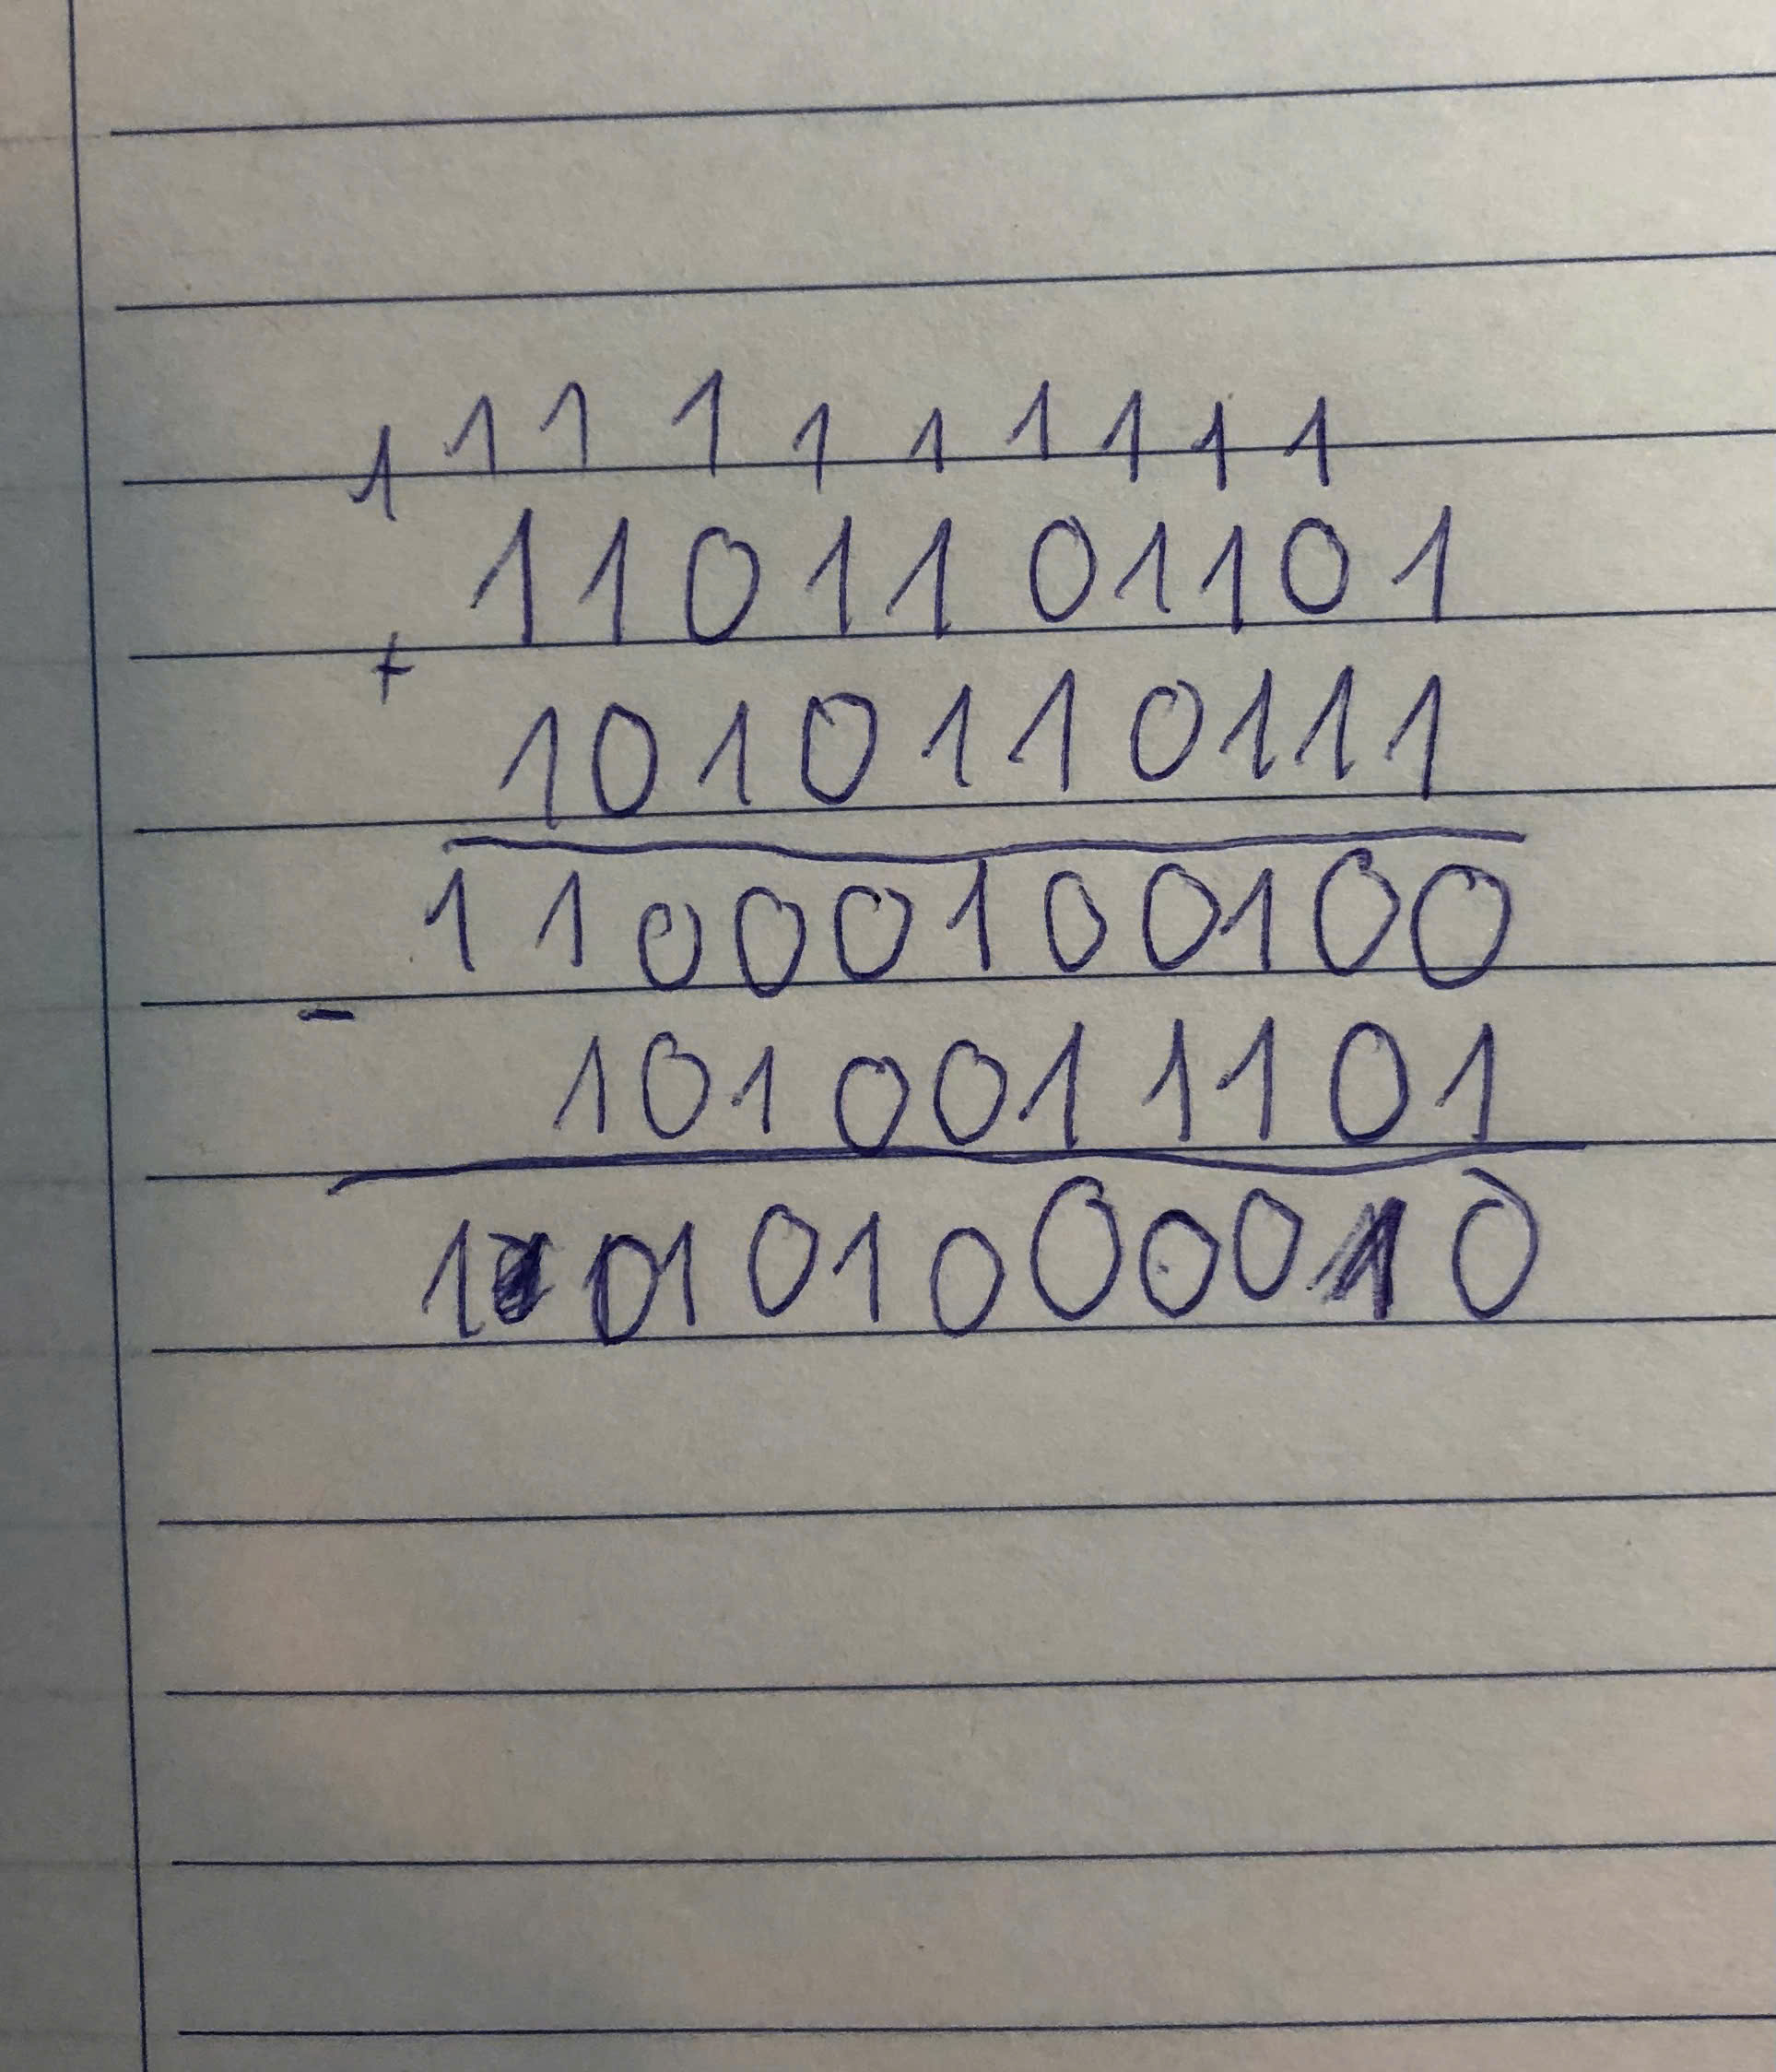 1 1 1 1 1 1 1 1 1 1
1101101101
+
1010110111
11000100100
-
1010011101
10101000010